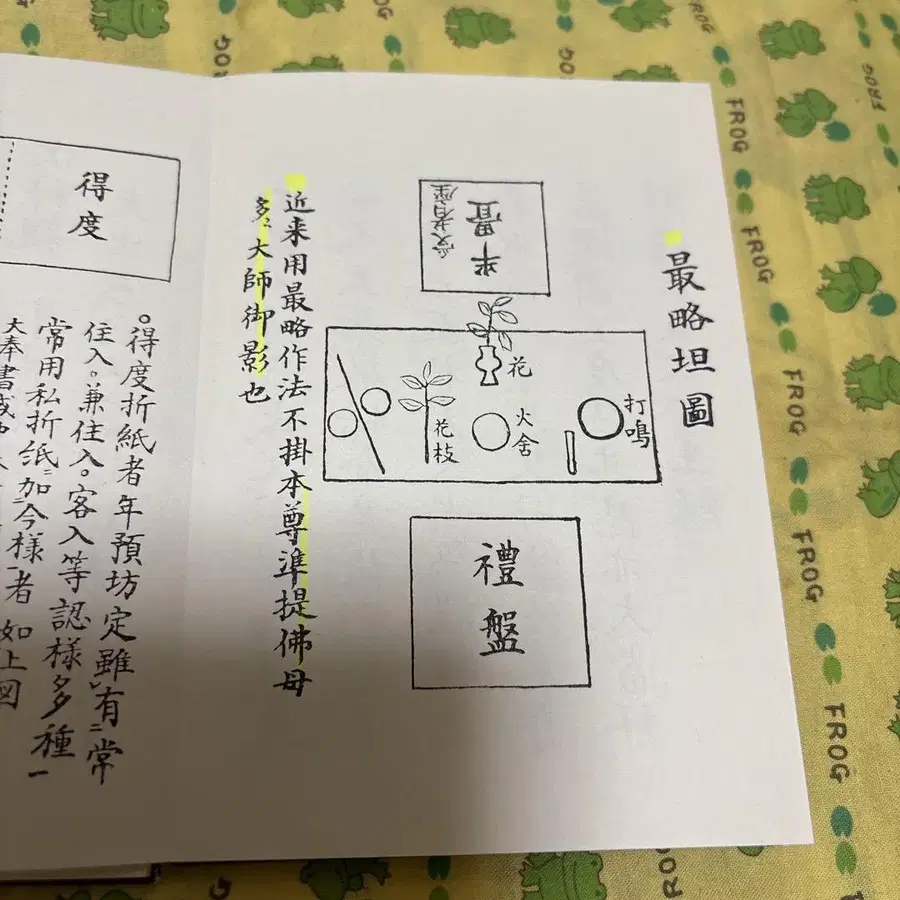 最略坦圖
半畳
受者座
花
打鳴
火舎
花枝
禮盤
近来用最略作法不掛本尊準提佛母
多〻大師御影也
得度
○得度折紙者年預坊定雖有常
住入。兼住入。客入等認様多種一
常用私折紙加今様者如上図
大奉書或
FROG
FROG
FROG
FROG
FROG
FROG
FROG
FROG
FROG